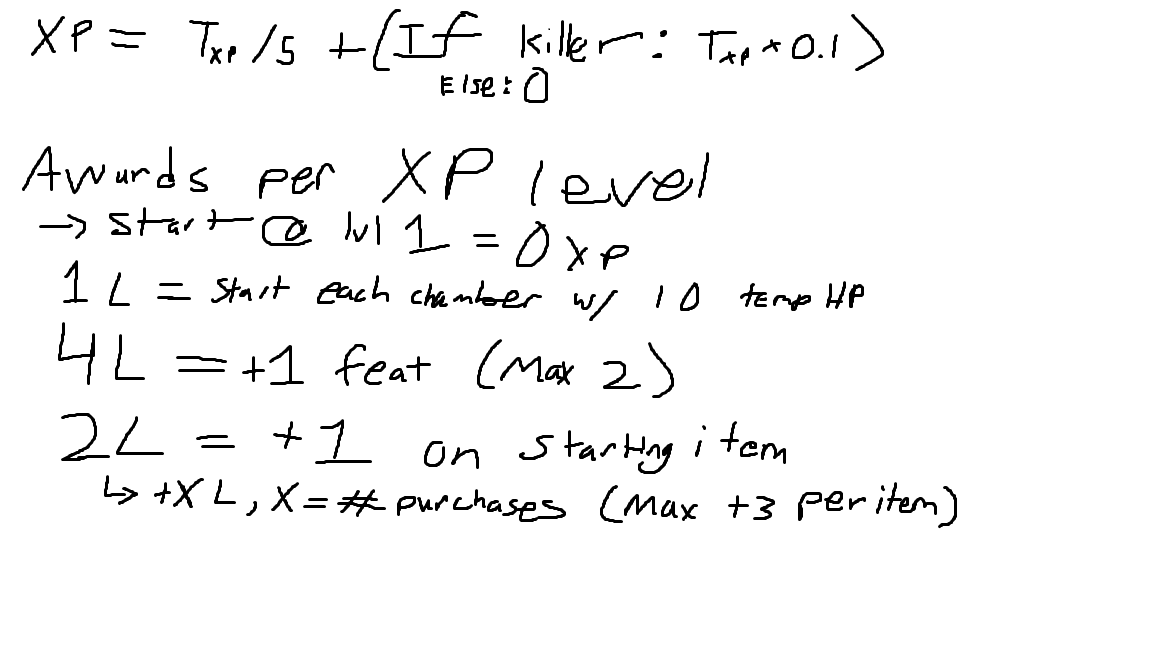 XP = Txp/5 + (If killer: Txp * 0.1)
Else: 0
Awards per XP level
→ start @ lvl 1 = 0 xp
1 L = start each chamber w/ 10 temp HP
4L = +1 feat (Max 2)
2L = +1 on starting item
↳ +X L, X = # purchases (Max +3 per item)